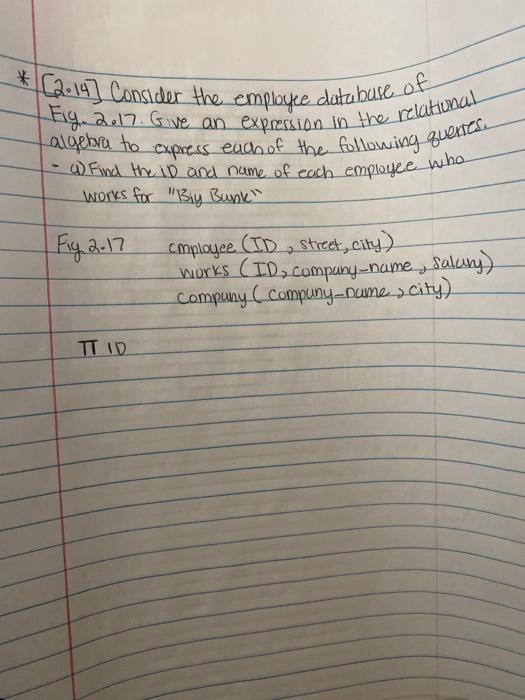 * [2.14] Consider the employee database of
Fig. 2.17. Give an expression in the relational
algebra to express each of the following queries.
- a) Find the ID and name of each employee who
works for "Big Bank"
Fig 2.17 employee (ID, street, city)
works (ID, company-name, salary)
company (company-name, city)
π ID